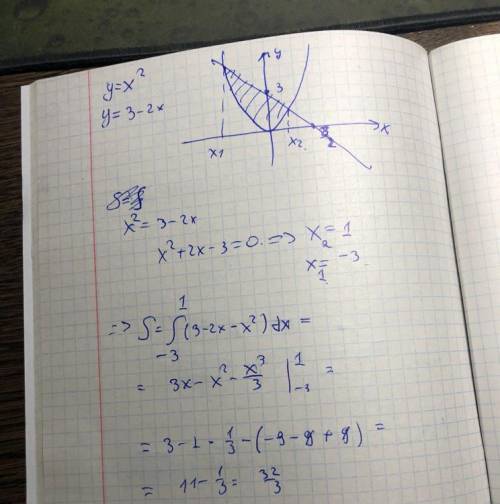 y=x²
y=3-2x
y
3
x
x1
x2
3/2
x²=3-2x
x²+2x-3=0. => x₂=1
x₁=-3
=> S=∫₋₃¹(3-2x-x²)dx=
= 3x-x²-x³/3 |₋₃¹ =
= 3-1-1/3-(-9-9+9) =
= 11-1/3= 32/3